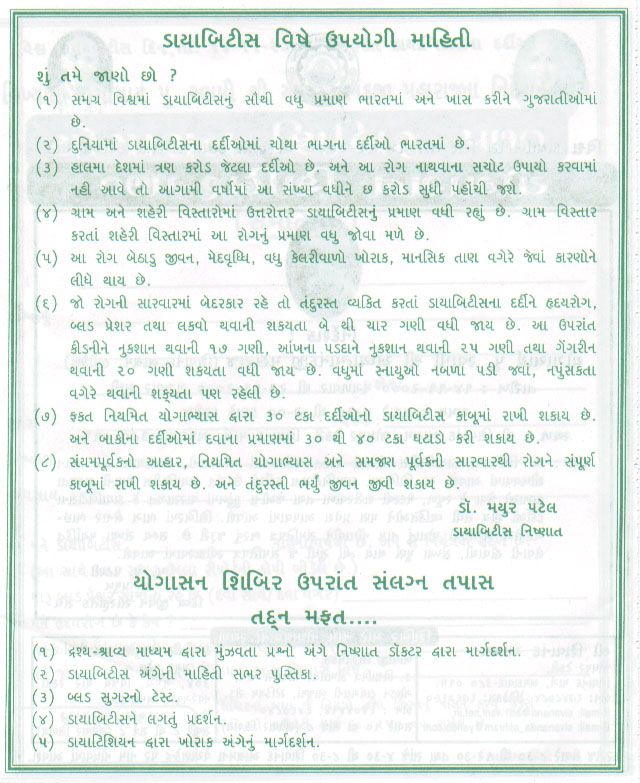 ડાયાબિટીસ વિષે ઉપયોગી માહિતી
શું તમે જાણો છો ?
(૧) સમગ્ર વિશ્વમાં ડાયાબિટીસનું સૌથી વધુ પ્રમાણ ભારતમાં અને ખાસ કરીને ગુજરાતીઓમાં
છે.
(૨) દુનિયામાં ડાયાબિટીસના દર્દીઓમાં ચોથા ભાગના દર્દીઓ ભારતમાં છે.
(૩) હાલમા દેશમાં ત્રણ કરોડ જેટલા દર્દીઓ છે. અને આ રોગ નાથવાના સચોટ ઉપાયો કરવામાં
નહી આવે તો આગામી વર્ષોમાં આ સંખ્યા વધીને છ કરોડ સુધી પહોંચી જશે.
(૪) ગ્રામ અને શહેરી વિસ્તારોમાં ઉત્તરોત્તર ડાયાબિટીસનું પ્રમાણ વધી રહ્યું છે. ગ્રામ વિસ્તાર
કરતાં શહેરી વિસ્તારમાં આ રોગનું પ્રમાણ વધુ જોવા મળે છે.
(૫) આ રોગ બેઠાડુ જીવન, મેદવૃધ્ધિ, વધુ કેલરીવાળો ખોરાક, માનસિક તાણ વગેરે જેવાં કારણોને
લીધે થાય છે.
(૬) જો રોગની સારવારમાં બેદરકાર રહે તો તંદુરસ્ત વ્યકિત કરતાં ડાયાબિટીસના દર્દીને હૃદયરોગ,
બ્લડ પ્રેશર તથા લકવો થવાની શકયતા બે થી ચાર ગણી વધી જાય છે. આ ઉપરાંત
કીડનીને નુકશાન થવાની ૧૭ ગણી, આંખના પડદાને નુકશાન થવાની ૨૫ ગણી તથા ગેંગરીન
થવાની ૨૦ ગણી શકયતા વધી જાય છે. વધુમાં સ્નાયુઓ નબળા પડી જવા, નપુંસકતા
વગેરે થવાની શકયતા પણ રહેલી છે.
(૭) ફકત નિયમિત યોગાભ્યાસ દ્વારા ૩૦ ટકા દર્દીઓનો ડાયાબિટીસ કાબૂમાં રાખી શકાય છે.
અને બાકીના દર્દીઓમાં દવાના પ્રમાણમાં ૩૦ થી ૪૦ ટકા ઘટાડો કરી શકાય છે.
(૮) સંયમપૂર્વકનો આહાર, નિયમિત યોગાભ્યાસ અને સમજણ પૂર્વકની સારવારથી રોગને સંપૂર્ણ
કાબૂમાં રાખી શકાય છે. અને તંદુરસ્તી ભર્યું જીવન જીવી શકાય છે.
ડૉ. મયુર પટેલ
ડાયાબિટીસ નિષ્ણાત
યોગાસન શિબિર ઉપરાંત સંલગ્ન તપાસ
તદ્દન મફત....
(૧) દ્રશ્ય-શ્રાવ્ય માધ્યમ દ્વારા મુંઝવતા પ્રશ્નો અંગે નિષ્ણાત ડૉકટર દ્વારા માર્ગદર્શન.
(૨) ડાયાબિટીસ અંગેની માહિતી સભર પુસ્તિકા.
(૩) બ્લડ સુગરનો ટેસ્ટ.
(૪) ડાયાબિટીસને લગતું પ્રદર્શન.
(૫) ડાયાટિશિયન દ્વારા ખોરાક અંગેનું માર્ગદર્શન.